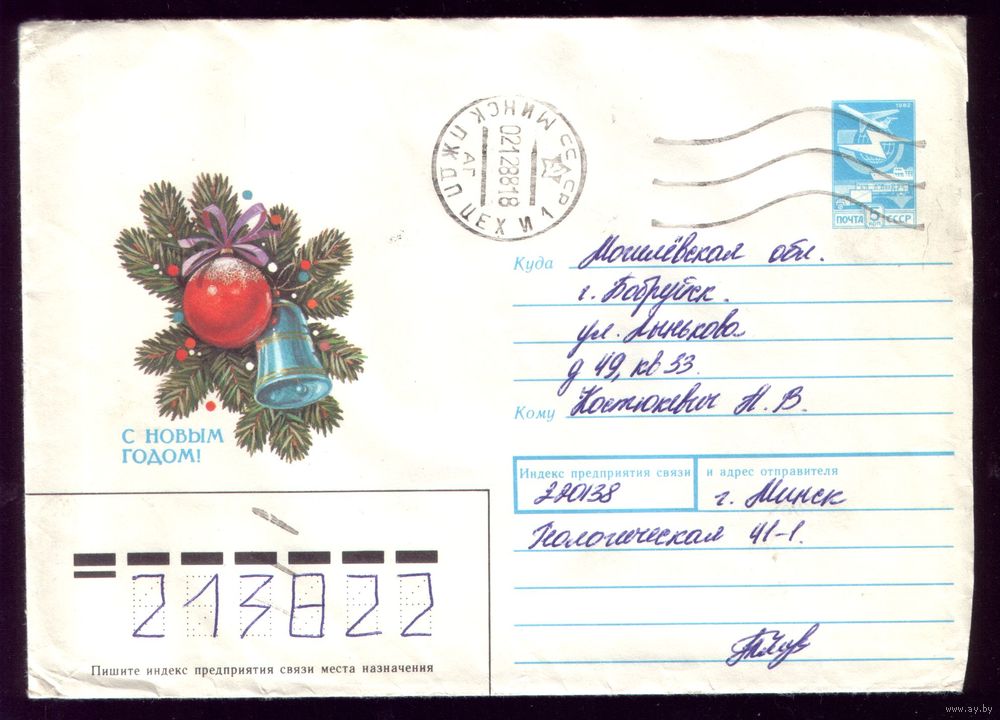 СССР МИНСК ПЖДП ЦЕХ И 1
АГ
02128818
1982
ПОЧТА 5 СССР
КОП
Куда Могилёвская обл.
г. Бобруйск.
ул. Лынькова
д 49, кв 33.
Кому Костюкевич Н. В.
С НОВЫМ
ГОДОМ!
Индекс предприятия связи и адрес отправителя
220138 г. Минск
Геологическая 41-1.
213822
Пишите индекс предприятия связи места назначения
www.ay.by